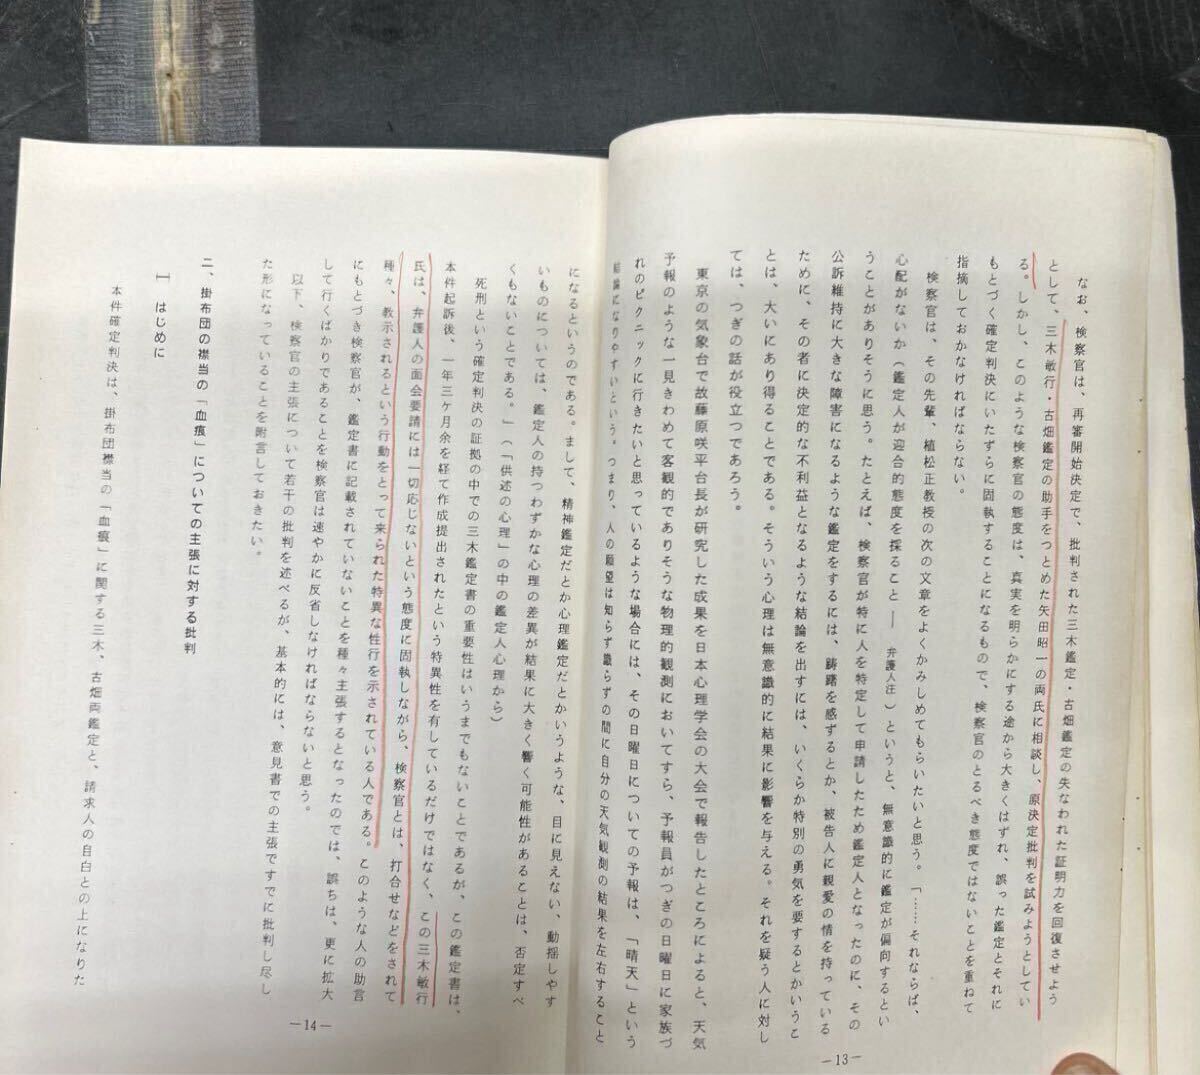 なお、検察官は、再審開始決定で、批判された三木鑑定・古畑鑑定の失なわれた証明力を回復させよう
として、三木敏行・古畑鑑定の助手をつとめた矢田昭一の両氏に相談し、原決定批判を試みようとしてい
る。しかし、このような検察官の態度は、真実を明らかにする途から大きくはずれ、誤った鑑定とそれに
もとづく確定判決にいたずらに固執することになるもので、検察官のとるべき態度ではないことを重ねて
指摘しておかなければならない。
検察官は、その先輩、植松正教授の次の文章をよくかみしめてもらいたいと思う。「……それならば、
心配がないか（鑑定人が迎合的態度を採ること――弁護人注）というと、無意識的に鑑定が偏向するとい
うことがありそうに思う。たとえば、検察官が特に人を特定して申請したため鑑定人となったのに、その
公訴維持に大きな障害になるような鑑定をするには、躊躇を感ずるとか、被告人に親愛の情を持っている
ために、その者に決定的な不利益となるような結論を出すには、いくらか特別の勇気を要するとかいうこ
とは、大いにあり得ることである。そういう心理は無意識的に結果に影響を与える。それを疑う人に対し
ては、つぎの話が役立つであろう。
東京の気象台で故藤原咲平台長が研究した成果を日本心理学会の大会で報告したところによると、天気
予報のような一見きわめて客観的でありそうな物理的観測においてすら、予報員がつぎの日曜日に家族づ
れのピクニックに行きたいと思っているような場合には、その日曜日についての予報は、「晴天」という
結論になりやすいという。つまり、人の願望は知らず識らずの間に自分の天気観測の結果を左右すること
―13―
になるというのである。まして、精神鑑定だとか心理鑑定だとかいうような、目に見えない、動揺しやす
いものについては、鑑定人の持つわずかな心理の差異が結果に大きく響く可能性があることは、否定すべ
くもないことである。」（「供述の心理」の中の鑑定人心理から）
死刑という確定判決の証拠の中での三木鑑定書の重要性はいうまでもないことであるが、この鑑定書は、
本件起訴後、一年三ケ月余を経て作成提出されたという特異性を有しているだけではなく、この三木敏行
氏は、弁護人の面会要請には一切応じないという態度に固執しながら、検察官とは、打合せなどをされて
種々、教示されるという行動をとって来られた特異な性行を示されている人である。このような人の助言
にもとづき検察官が、鑑定書に記載されていないことを種々主張するとなったのでは、誤ちは、更に拡大
して行くばかりであることを検察官は速やかに反省しなければならないと思う。
以下、検察官の主張について若干の批判を述べるが、基本的には、意見書での主張ですでに批判し尽し
た形になっていることを附言しておきたい。
二、掛布団の襟当の「血痕」についての主張に対する批判
1 はじめに
本件確定判決は、掛布団襟当の「血痕」に関する三木、古畑両鑑定と、請求人の自白との上になりた
―14―